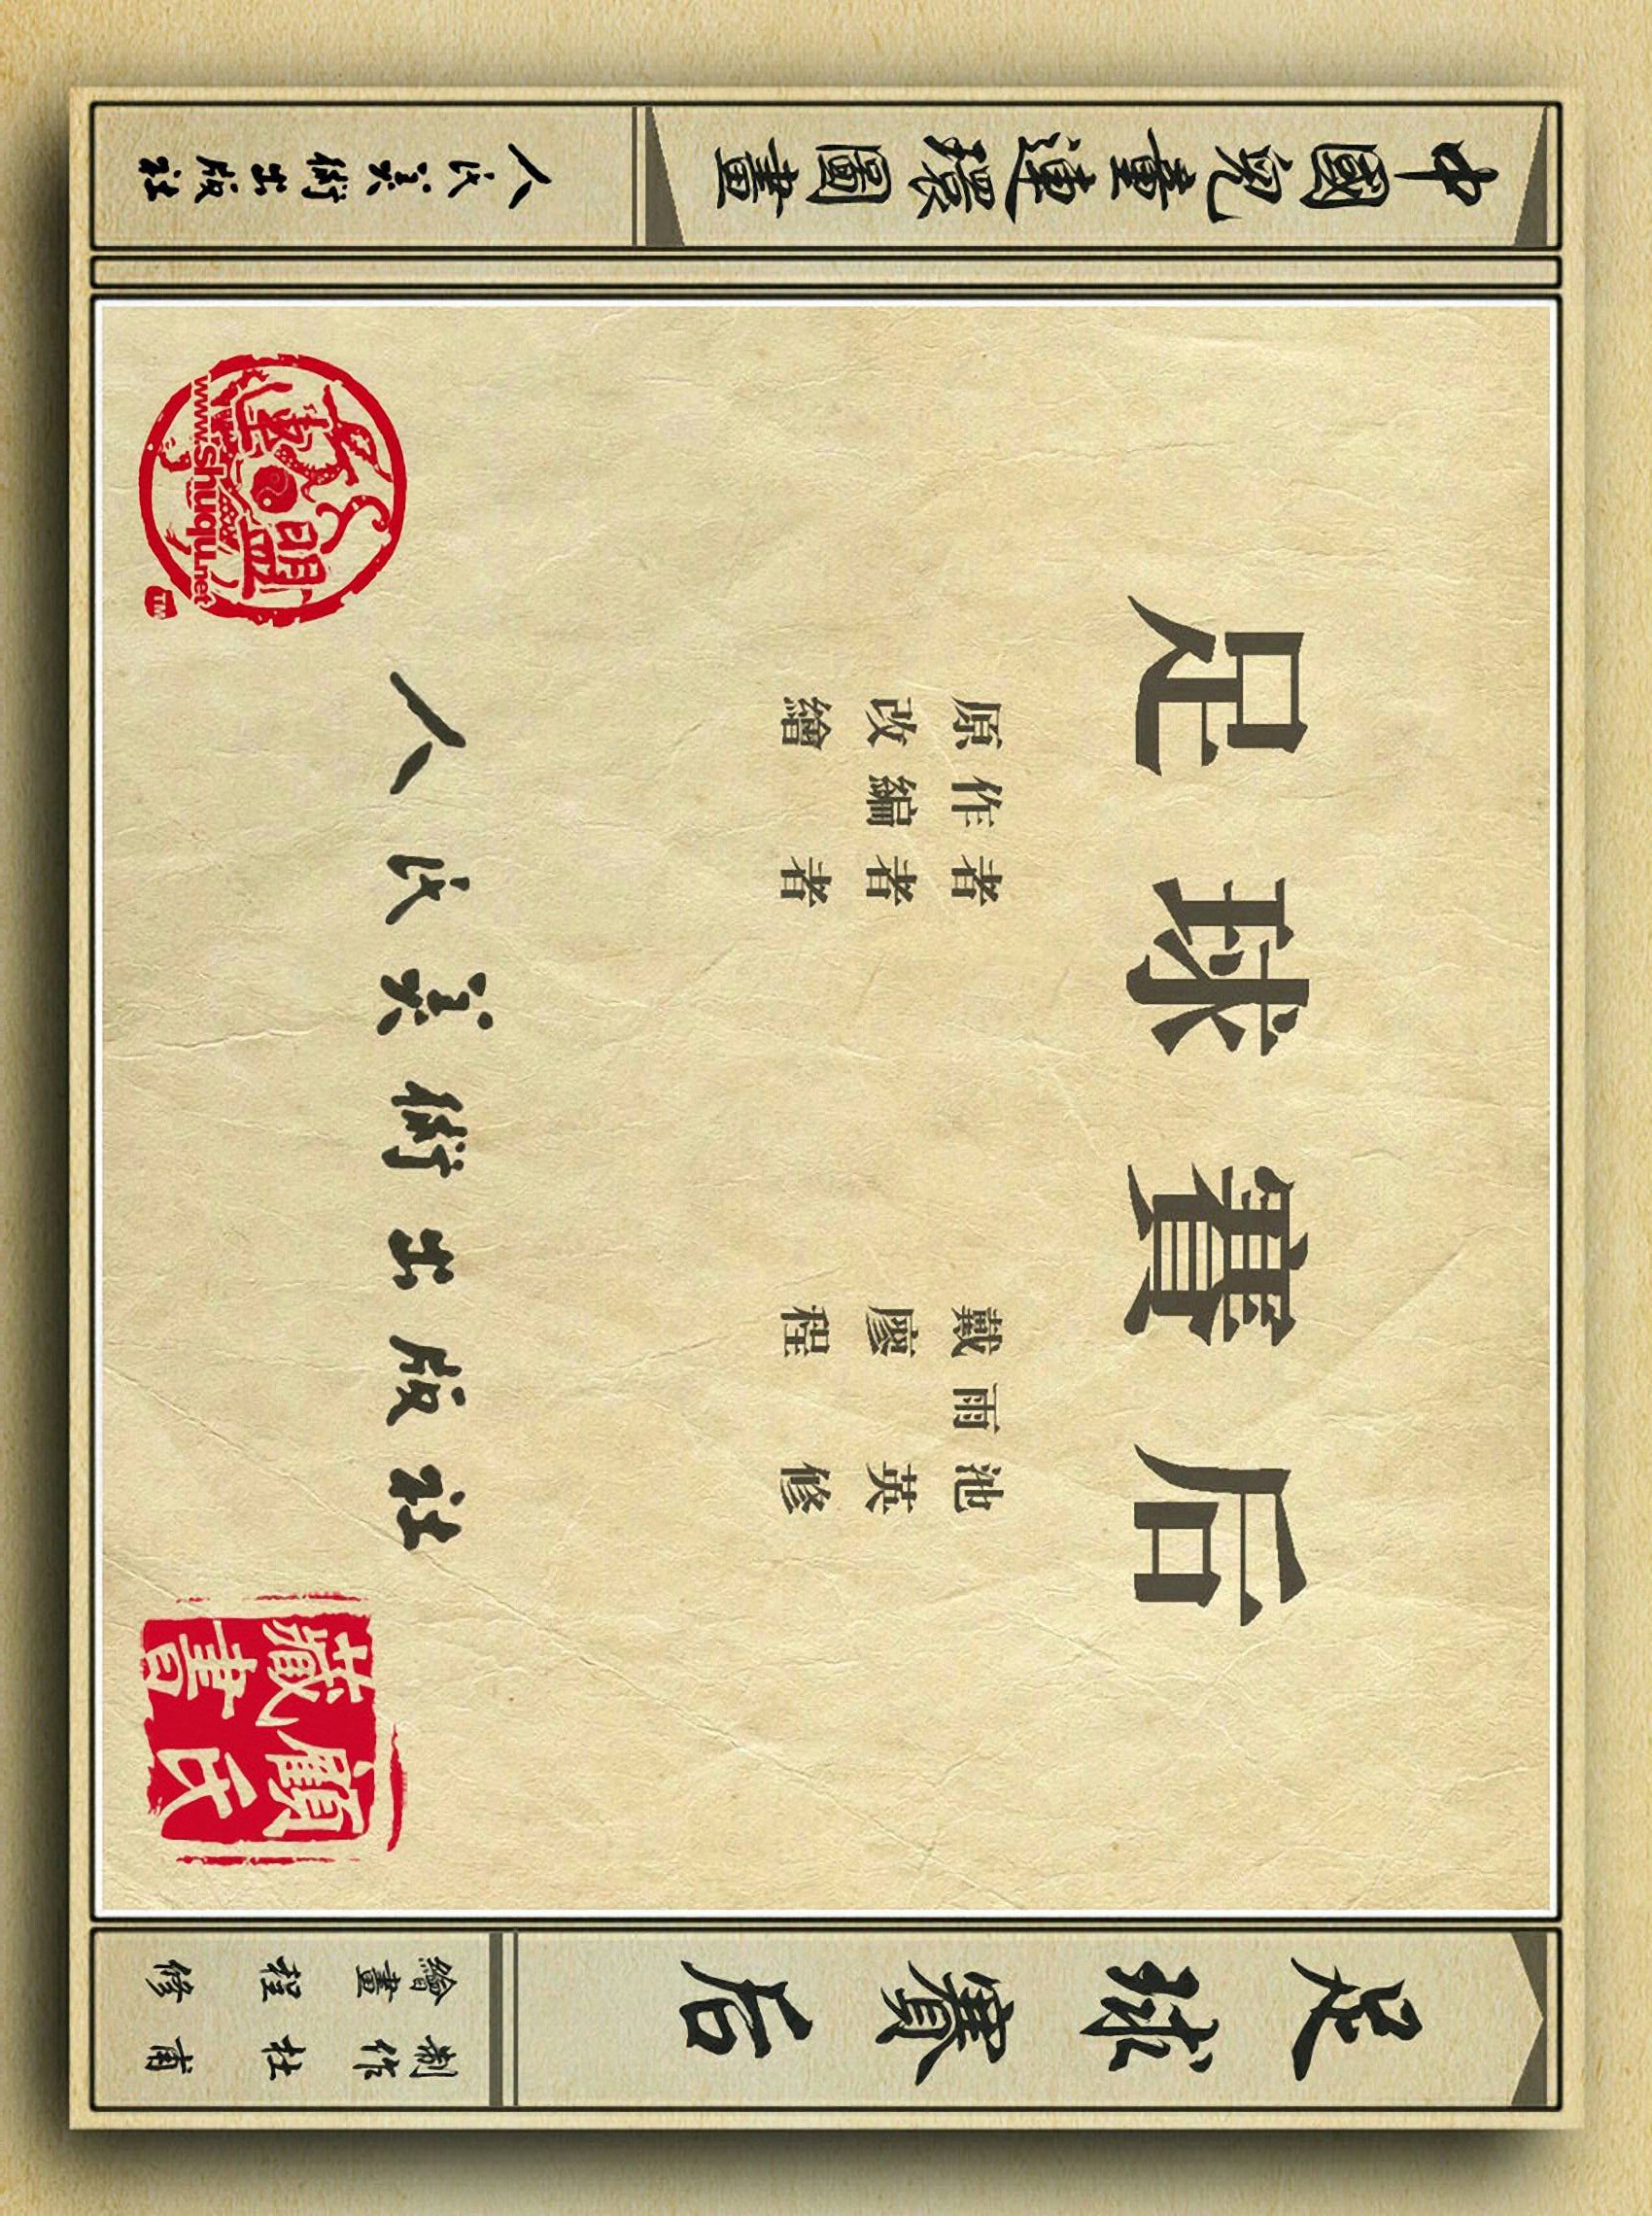 中國兒童連環圖畫
人民美術出版社
足球賽后
原作者 戴雨池
改編者 廖英
繪者 程修
人民美術出版社
連盟
www.shuqu.net
TM
顧氏
藏書
足球賽后
繪畫 程修
制作 杜甫